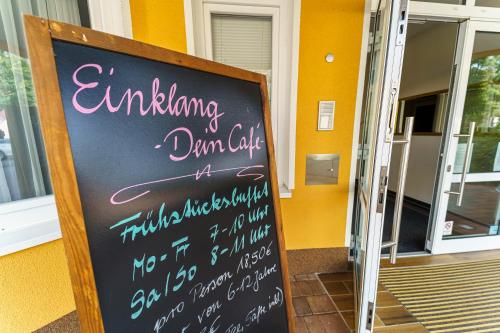 Einklang
- Dein Café
Frühstücksbuffet
Mo - Fr 7 - 10 Uhr
Sa/So 8 - 11 Uhr
pro Person 18,50€
von 6-12 Jahre